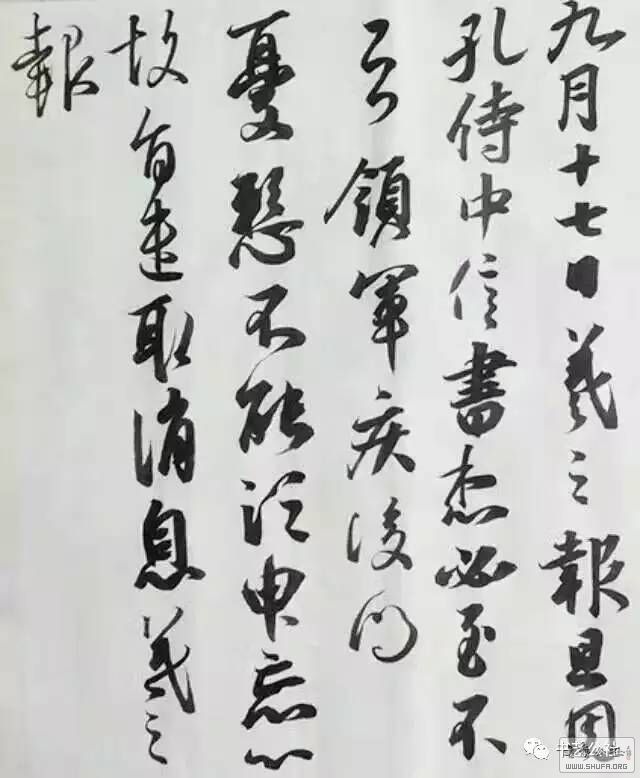 九月十七日羲之報且因
孔侍中信書想必至不
知領軍疾後問
憂懸不能須臾忘心
故旨遣取消息羲之
報
WWW.SHUFA.ORG